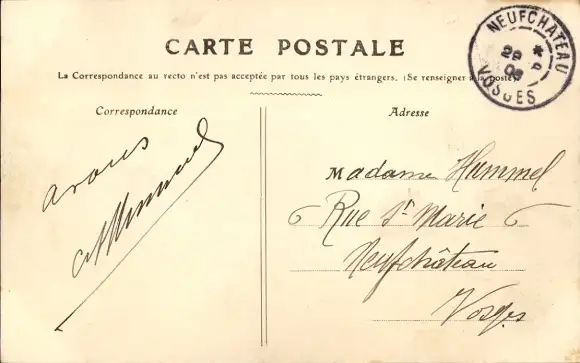 CARTE POSTALE
La Correspondance au recto n'est pas acceptée par tous les pays étrangers. (Se renseigner à la poste)
NEUFCHATEAU
29
09
VOSGES
Correspondance
Adresse
a vous
Madame Hummel
Rue Ste Marie
Neufchâteau
Vosges